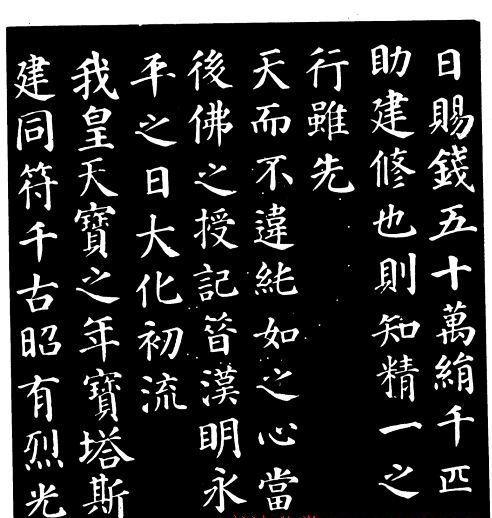 日賜錢五十萬絹千匹
助建修也則知精一之
行雖先
天而不違純如之心當
後佛之授記昔漢明永
平之日大化初流
我皇天寶之年寶塔斯
建同符千古昭有烈光